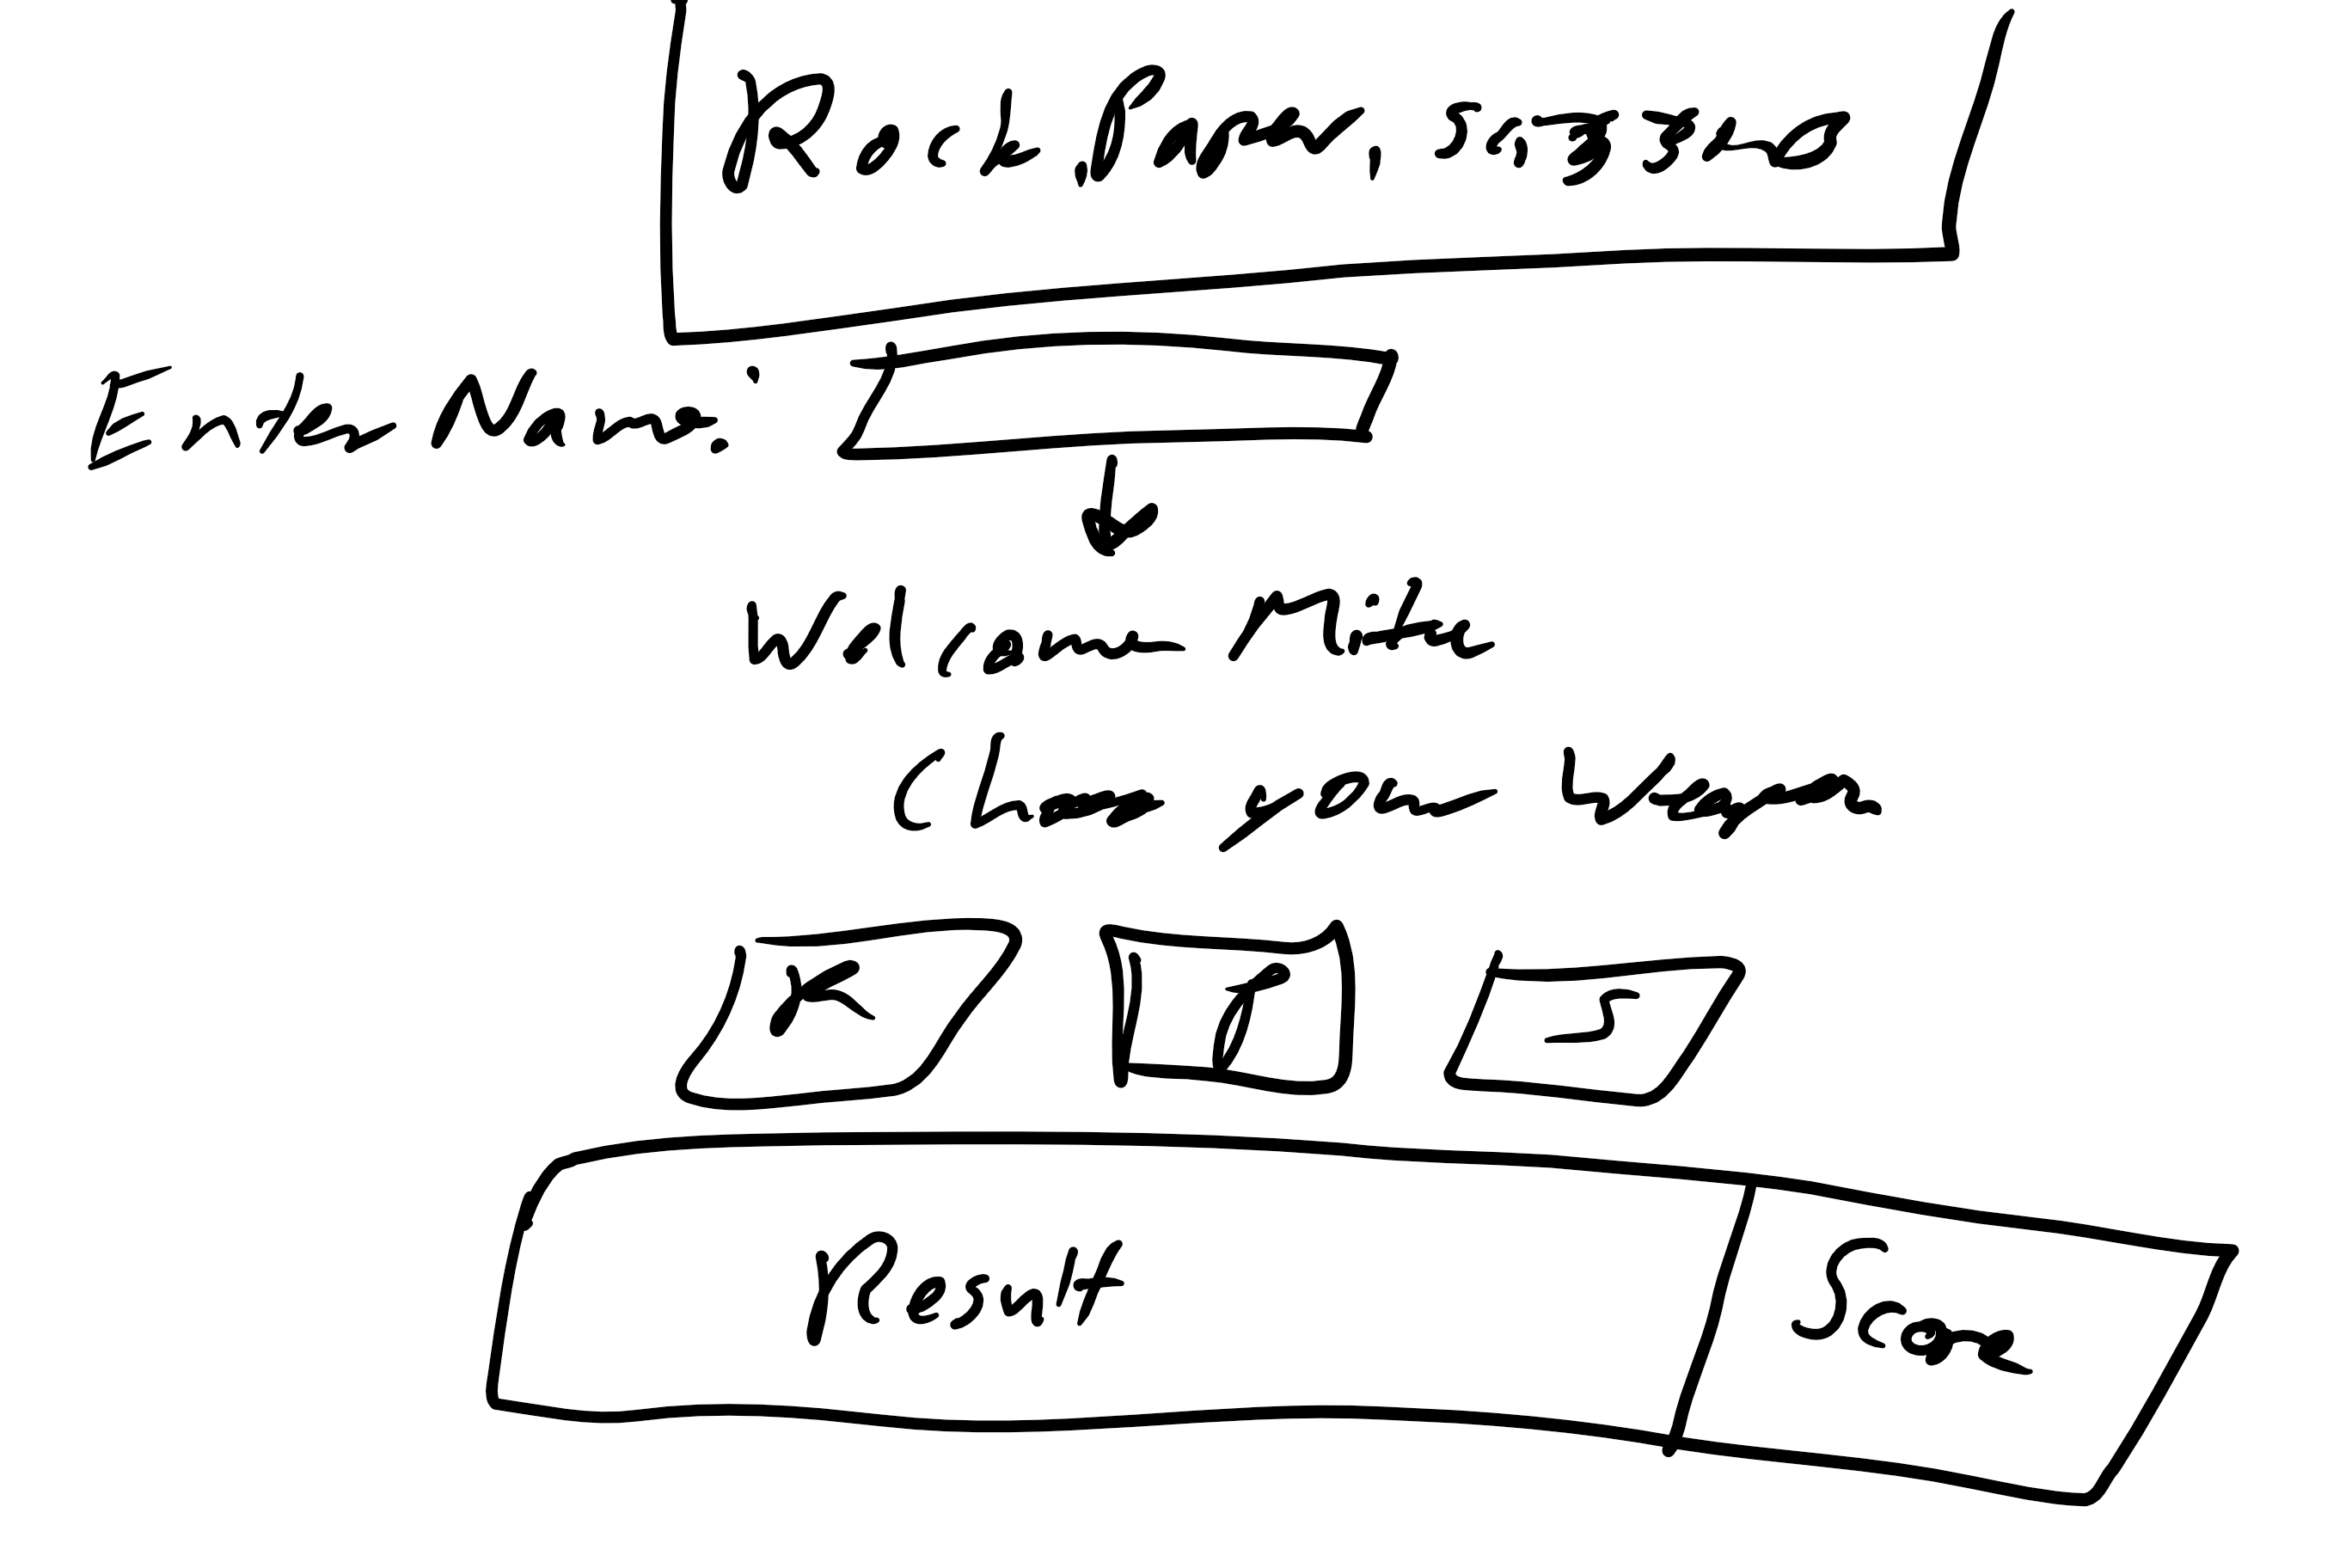 Rock, Paper, Scissors
Enter Name:
Welcome Mike
Choose your Weapon
R P S
Result Score